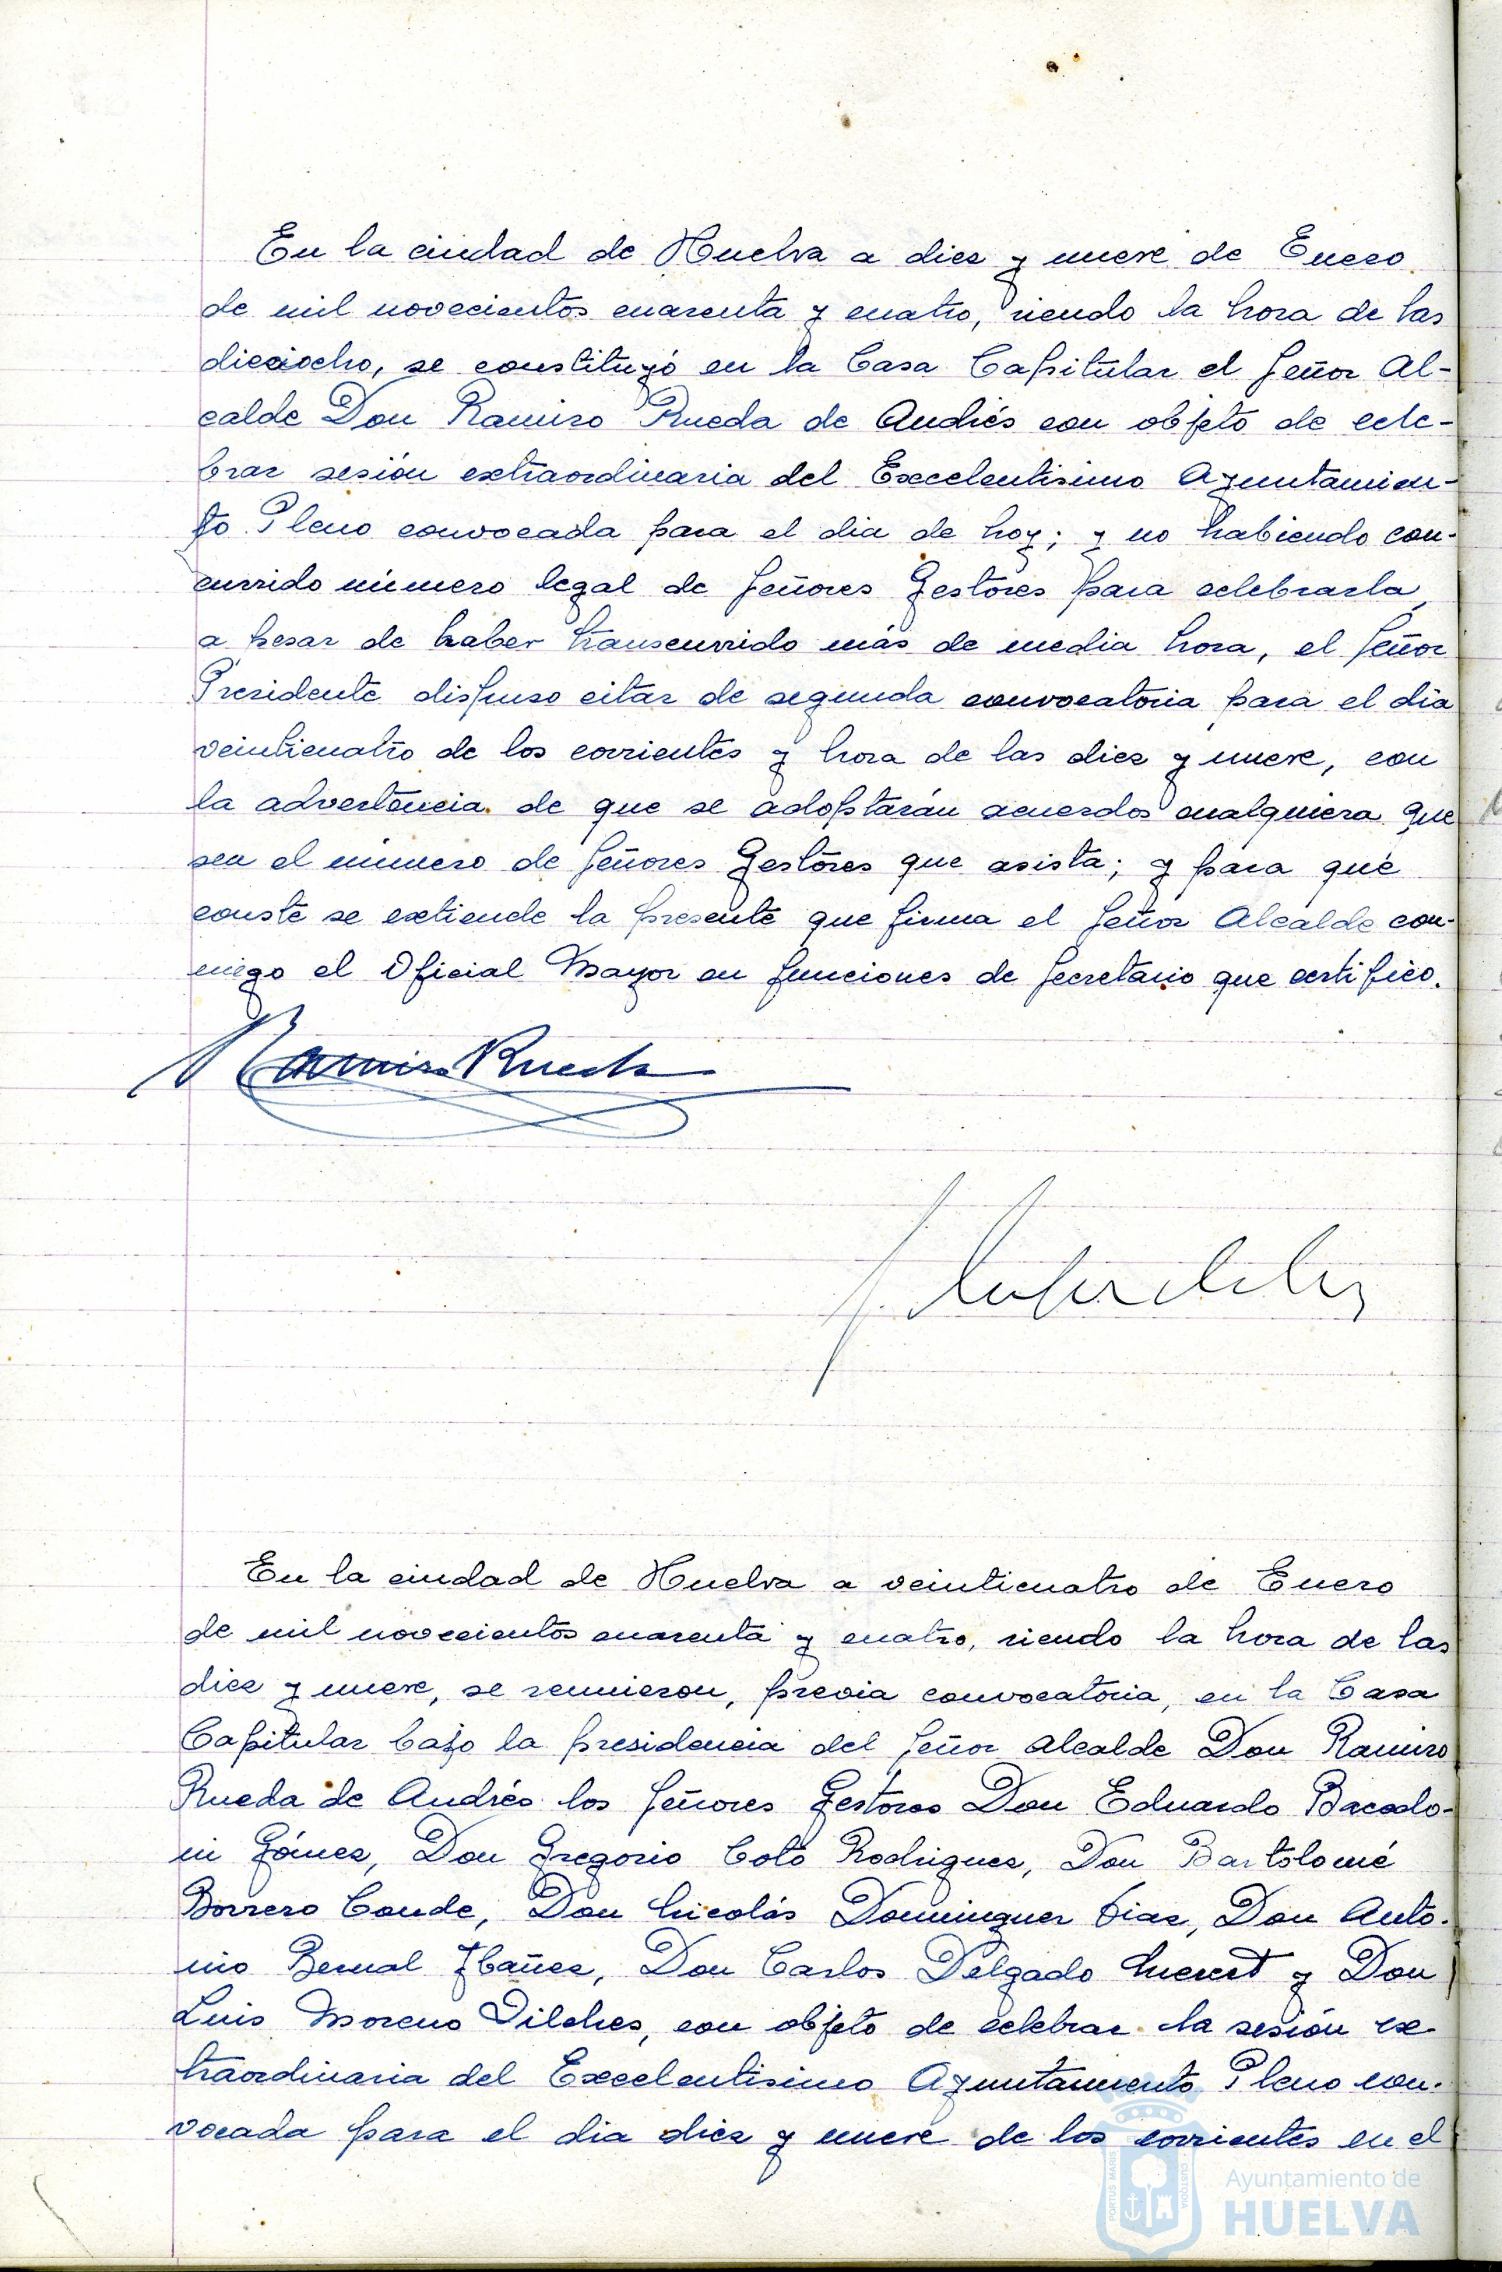 En la ciudad de Huelva a diez y nueve de Enero
de mil novecientos cuarenta y cuatro, siendo la hora de las
dieciocho, se constituyó en la Casa Capitular el Señor Al-
calde Don Ramiro Rueda de Andrés con objeto de cele-
brar sesión extraordinaria del Excelentisimo Ayuntamien-
to Pleno convocada para el dia de hoy; y no habiendo con-
currido número legal de Señores Gestores para celebrarla,
a pesar de haber transcurrido más de media hora, el Señor
Presidente dispuso citar de segunda convocatoria para el dia
veinticuatro de los corrientes y hora de las diez y nueve, con
la advertencia de que se adoptarán acuerdos cualquiera que
sea el número de Señores Gestores que asista; y para que
conste se extiende la presente que firma el Señor Alcalde con-
migo el Oficial Mayor en funciones de Secretario que certifico.
Ramiro Rueda
En la ciudad de Huelva a veinticuatro de Enero
de mil novecientos cuarenta y cuatro, siendo la hora de las
diez y nueve, se reunieron, previa convocatoria, en la Casa
Capitular bajo la presidencia del Señor Alcalde Don Ramiro
Rueda de Andrés los Señores Gestores Don Eduardo Bacedo-
ni Gómez, Don Gregorio Coto Rodriguez, Don Bartolomé
Borrero Conde, Don Nicolás Dominguez Diaz, Don Anto-
nio Bernal Ibañez, Don Carlos Delgado y Don
Luis Moreno Vilches, con objeto de celebrar la sesión ex-
traordinaria del Excelentisimo Ayuntamiento Pleno con-
vocada para el dia diez y nueve de los corrientes en el
PORTUS MARIS CUSTODIA
Ayuntamiento de
HUELVA